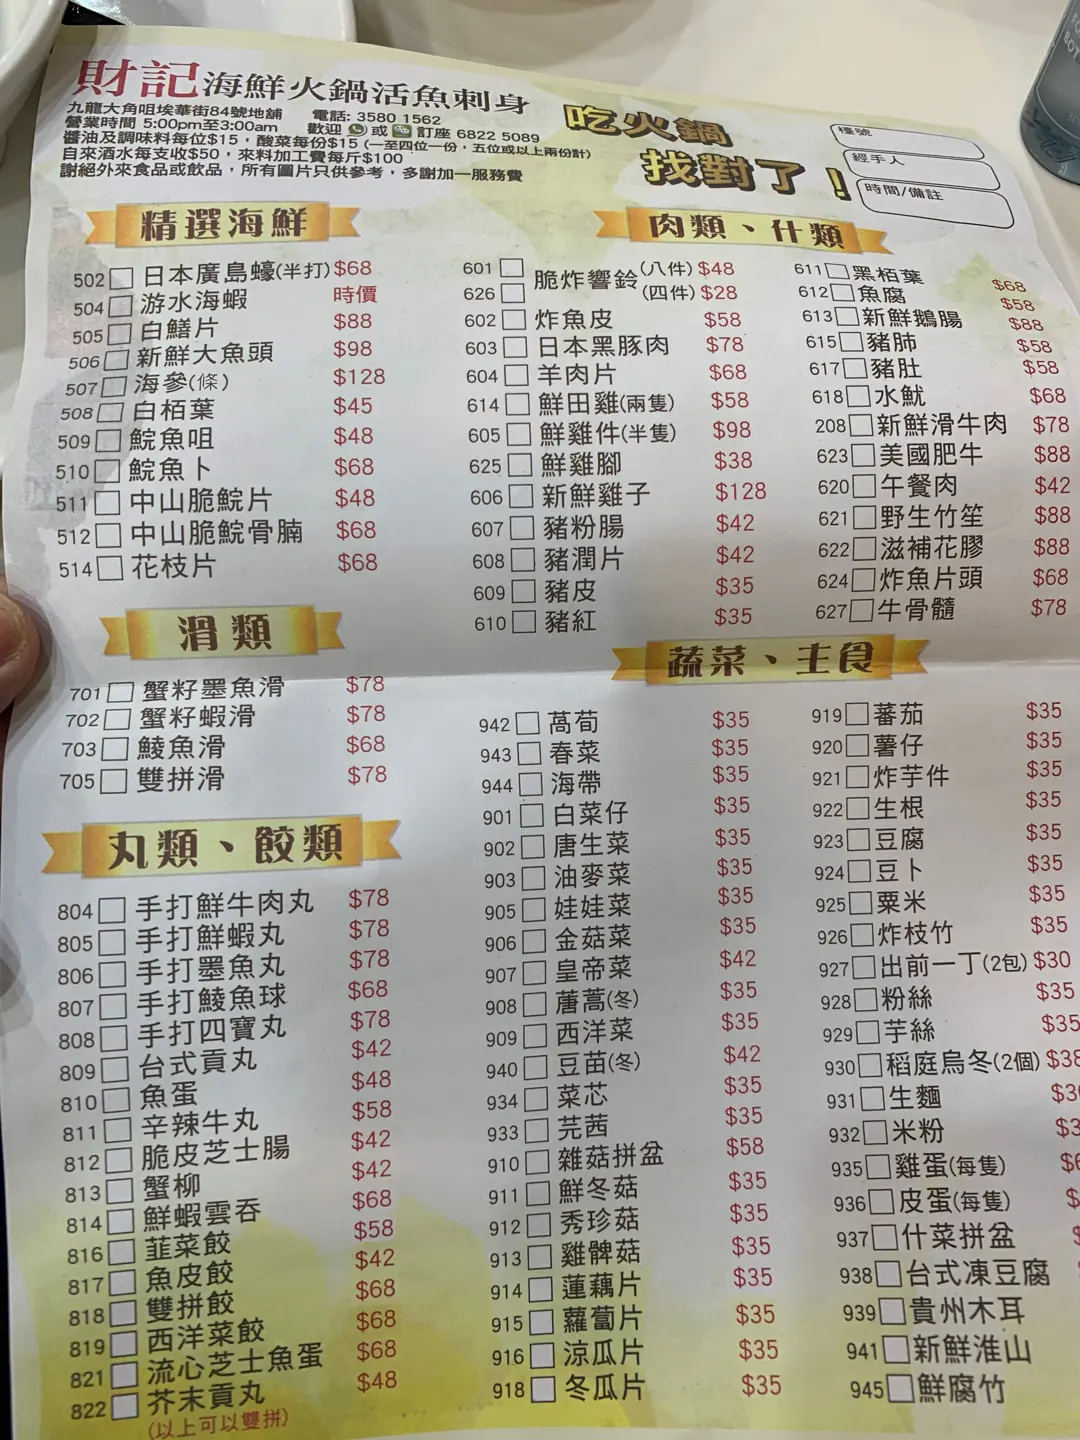 財記海鮮火鍋活魚刺身
九龍大角咀埃華街84號地舖 電話: 3580 1562
營業時間 5:00pm至3:00am 歡迎 或 訂座 6822 5089
醬油及調味料每位$15，酸菜每份$15 (一至四位一份，五位或以上兩份計)
自來酒水每支收$50，來料加工費每斤$100
謝絕外來食品或飲品，所有圖片只供參考，多謝加一服務費
吃火鍋
找對了！
檯號
經手人
時間/備註
精選海鮮
502 日本廣島蠔(半打) $68
504 游水海蝦 時價
505 白鱔片 $88
506 新鮮大魚頭 $98
507 海參(條) $128
508 白栢葉 $45
509 鯇魚咀 $48
510 鯇魚卜 $68
511 中山脆鯇片 $48
512 中山脆鯇骨腩 $68
514 花枝片 $68
滑類
701 蟹籽墨魚滑 $78
702 蟹籽蝦滑 $78
703 鯪魚滑 $68
705 雙拼滑 $78
丸類、餃類
804 手打鮮牛肉丸 $78
805 手打鮮蝦丸 $78
806 手打墨魚丸 $78
807 手打鯪魚球 $68
808 手打四寶丸 $78
809 台式貢丸 $42
810 魚蛋 $48
811 辛辣牛丸 $58
812 脆皮芝士腸 $42
813 蟹柳 $42
814 鮮蝦雲吞 $68
816 韮菜餃 $58
817 魚皮餃 $42
818 雙拼餃 $68
819 西洋菜餃 $68
821 流心芝士魚蛋 $68
822 芥末貢丸 $48
(以上可以雙拼)
肉類、什類
601 脆炸響鈴 (八件) $48
626 (四件) $28
602 炸魚皮 $58
603 日本黑豚肉 $78
604 羊肉片 $68
614 鮮田雞(兩隻) $58
605 鮮雞件(半隻) $98
625 鮮雞腳 $38
606 新鮮雞子 $128
607 豬粉腸 $42
608 豬潤片 $42
609 豬皮 $35
610 豬紅 $35
611 黑栢葉 $68
612 魚腐 $58
613 新鮮鵝腸 $88
615 豬肺 $58
617 豬肚 $58
618 水魷 $68
208 新鮮滑牛肉 $78
623 美國肥牛 $88
620 午餐肉 $42
621 野生竹笙 $88
622 滋補花膠 $88
624 炸魚片頭 $68
627 牛骨髓 $78
蔬菜、主食
942 萵荀 $35
943 春菜 $35
944 海帶 $35
901 白菜仔 $35
902 唐生菜 $35
903 油麥菜 $35
905 娃娃菜 $35
906 金菇菜 $35
907 皇帝菜 $42
908 蓎蒿(冬) $35
909 西洋菜 $35
940 豆苗(冬) $42
934 菜芯 $35
933 芫茜 $35
910 雜菇拼盆 $58
911 鮮冬菇 $35
912 秀珍菇 $35
913 雞髀菇 $35
914 蓮藕片 $35
915 蘿蔔片 $35
916 涼瓜片 $35
918 冬瓜片 $35
919 蕃茄 $35
920 薯仔 $35
921 炸芋件 $35
922 生根 $35
923 豆腐 $35
924 豆卜 $35
925 粟米 $35
926 炸枝竹 $35
927 出前一丁(2包) $30
928 粉絲 $35
929 芋絲 $35
930 稻庭烏冬(2個) $38
931 生麵
932 米粉
935 雞蛋(每隻)
936 皮蛋(每隻)
937 什菜拼盆
938 台式凍豆腐
939 貴州木耳
941 新鮮淮山
945 鮮腐竹